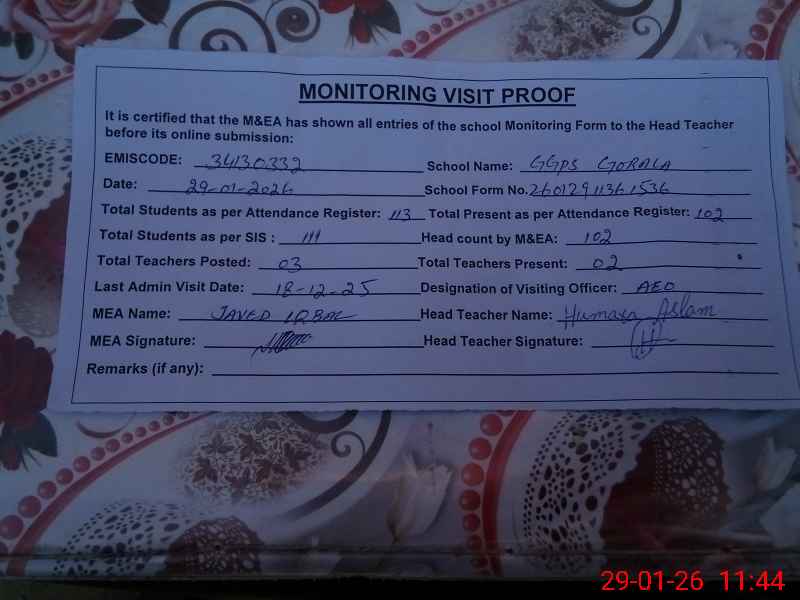 MONITORING VISIT PROOF
It is certified that the M&EA has shown all entries of the school Monitoring Form to the Head Teacher
before its online submission:
EMISCODE: 34130332 School Name: GGPS GORALA
Date: 29-01-2026 School Form No. 2601291136 1536
Total Students as per Attendance Register: 113 Total Present as per Attendance Register: 102
Total Students as per SIS : 111 Head count by M&EA: 102
Total Teachers Posted: 03 Total Teachers Present: 02
Last Admin Visit Date: 18-12-25 Designation of Visiting Officer: AEO
MEA Name: JAVED IQBAL Head Teacher Name: Humaxa Aslam
MEA Signature: Head Teacher Signature:
Remarks (if any):
29-01-26 11:44